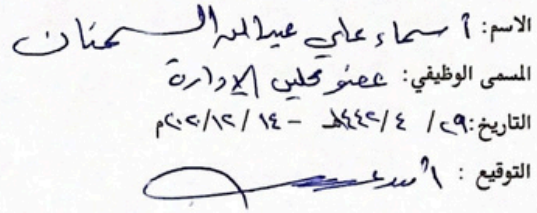 الاسم: أسماء علي عبدالله السمنان
المسمى الوظيفي: عضو مجلس الإدارة
التاريخ: ٢٩/ ٤ /١٤٤٢هـ - ١٤ /١٢/ ٢٠٢٠م
التوقيع :